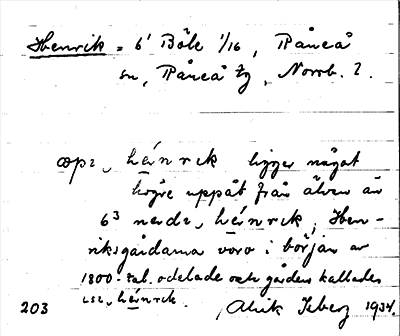 Henrik = 6¹ Böle 1/16, Råneå
sn, Råneå tg, Norrb. l.
œpɛ, héinrɛk ligger något
högre uppåt från älven än
6³ nedɛ, héinrɛk, Hen-
riksgårdarna voro i början av
1800-tal. odelade och gården kallades
héinrɛk.
203 Alrik Isberg 1934.